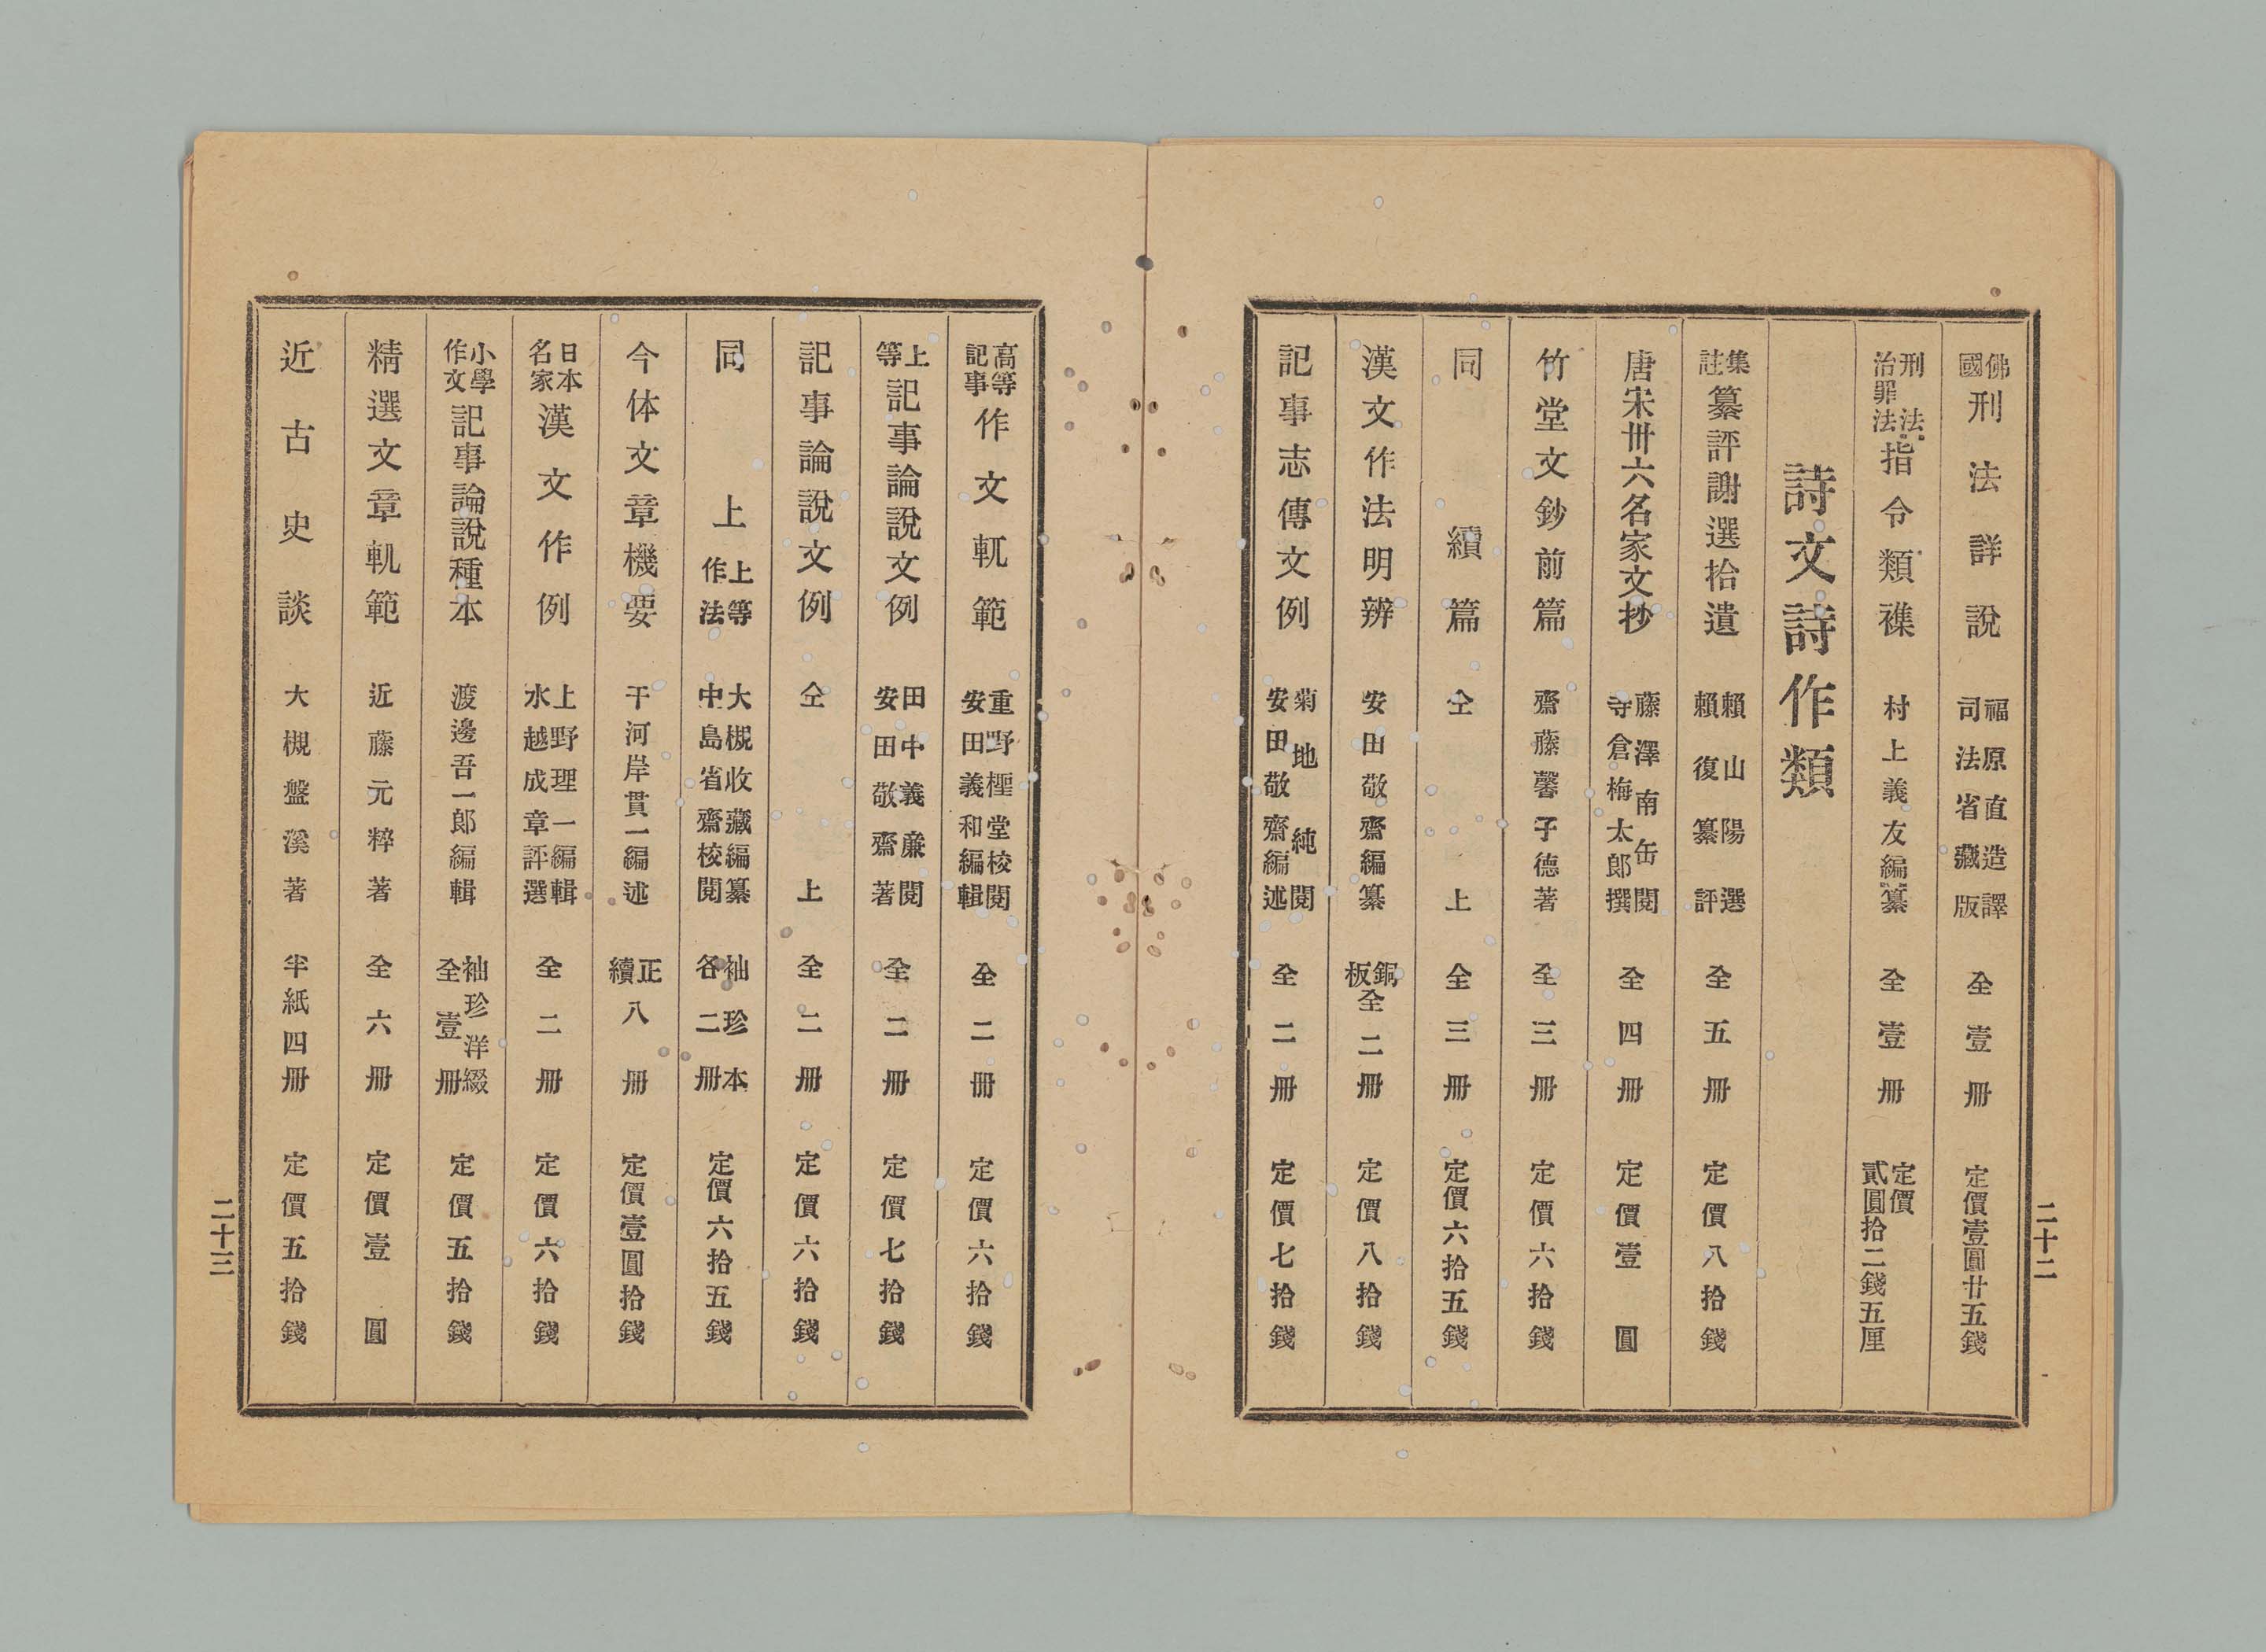 佛國刑法詳說 福原直造譯 司法省藏版 全壹冊 定價壹圓廿五錢
刑法治罪法指令類襍 村上義友編纂 全壹冊 定價貳圓拾二錢五厘
詩文詩作類
集註纂評謝選拾遺 賴山陽選 賴復纂評 全五冊 定價八拾錢
唐宋卅六名家文抄 藤澤南岳閱 寺倉梅太郎撰 全四冊 定價壹圓
竹堂文鈔前篇 齋藤馨子德著 全三冊 定價六拾錢
同續篇 仝上 全三冊 定價六拾五錢
漢文作法明辨 安田敬齋編纂 銅板全二冊 定價八拾錢
記事志傳文例 菊地純閱 安田敬齋編述 全二冊 定價七拾錢
二十二
高等記事作文軏範 重野櫮堂校閱 安田義和編輯 全二冊 定價六拾錢
上等記事論說文例 田中義廉閱 安田敬齋著 全二冊 定價七拾錢
記事論說文例 仝上 全二冊 定價六拾錢
同上 上等作法 大槻收藏編纂 中島省齋校閱 袖珍本各二冊 定價六拾五錢
今体文章機要 干河岸貫一編述 正續八冊 定價壹圓拾錢
日本名家漢文作例 上野理一編輯 水越成章評選 全二冊 定價六拾錢
小學作文記事論說種本 渡邊吾一郎編輯 袖珍洋綴全壹冊 定價五拾錢
精選文章軏範 近藤元粹著 全六冊 定價壹圓
近古史談 大槻盤溪著 半紙四冊 定價五拾錢
二十三